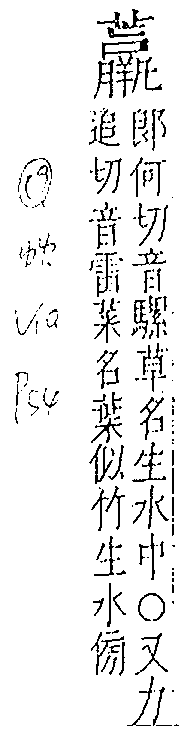 蘿
郎何切音騾草名生水中○又力
追切音雷菜名葉似竹生水傍
via
P54